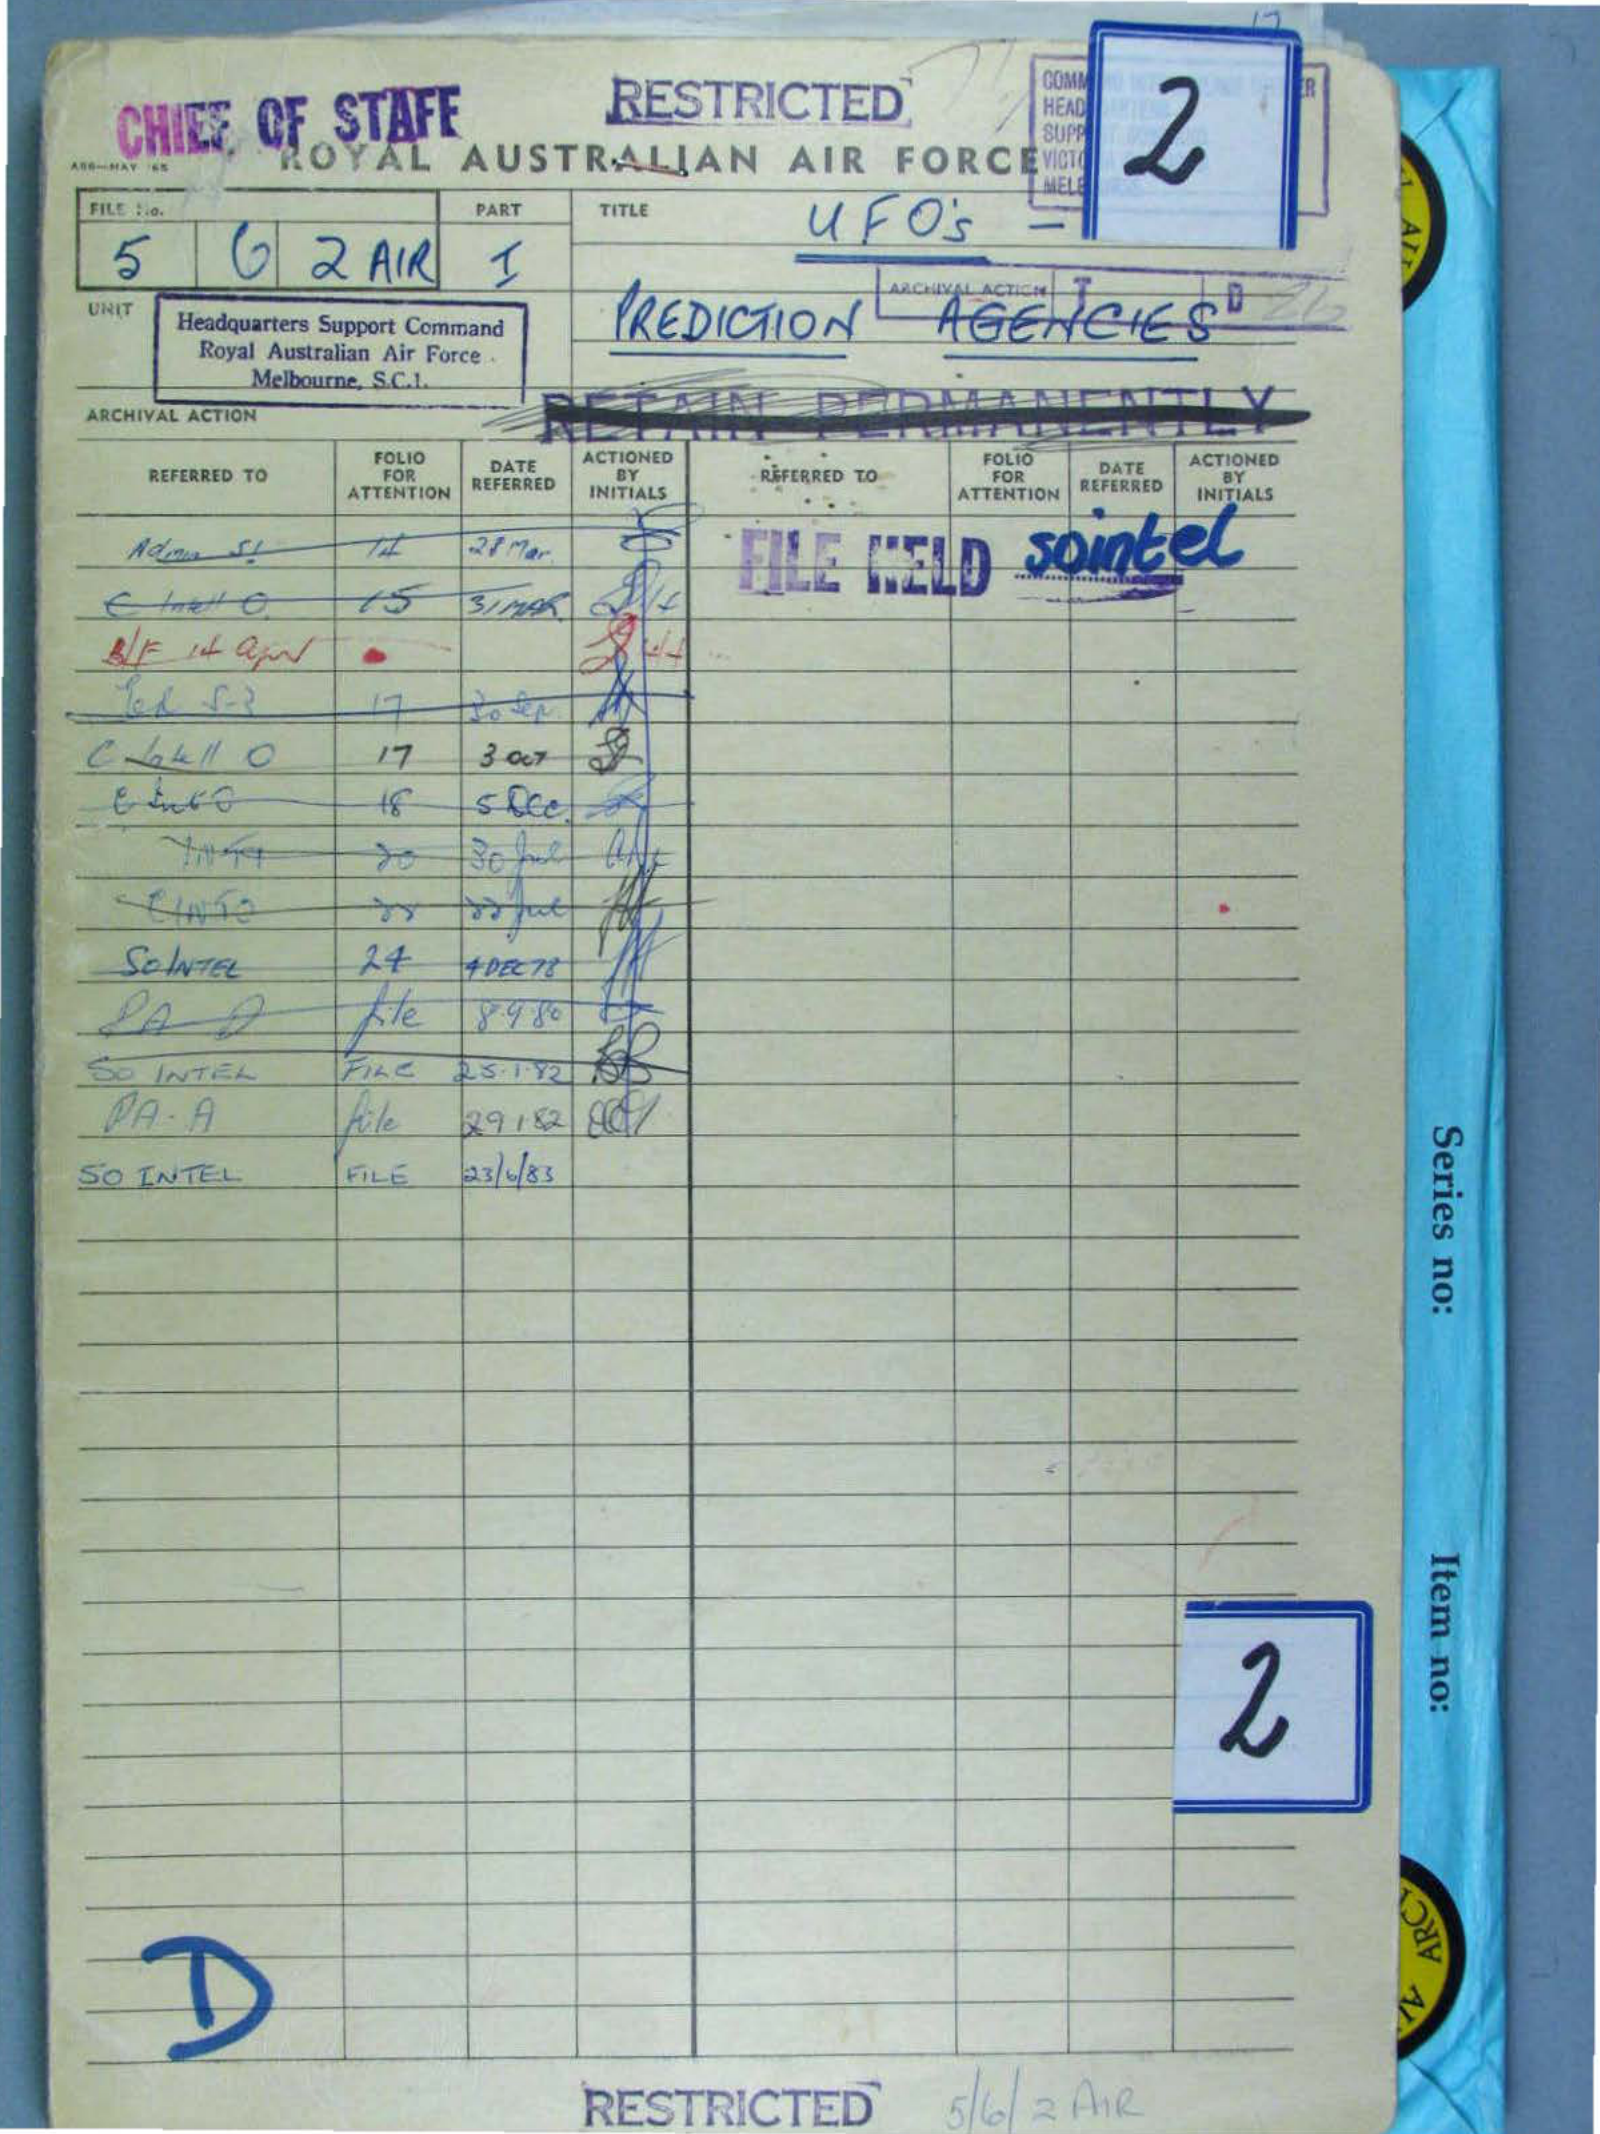 17
CHIEF OF STAFF
RESTRICTED
COMM ER
HEAD
SUPP
VICT
MELB
2
A86—MAY '65
ROYAL AUSTRALIAN AIR FORCE
FILE No.
PART
TITLE
UFO's -
5 6 2 AIR
I
ARCHIVAL ACTION T D
PREDICTION AGENCIES
UNIT
Headquarters Support Command
Royal Australian Air Force
Melbourne, S.C.1.
RETAIN PERMANENTLY
ARCHIVAL ACTION
REFERRED TO FOLIO FOR ATTENTION DATE REFERRED ACTIONED BY INITIALS REFERRED TO FOLIO FOR ATTENTION DATE REFERRED ACTIONED BY INITIALS
Admin S1 14 28 Mar.
FILE HELD sointel
C Intell O. 15 31 MAR.
B/F 14 Apr
17 30 Sep.
C Intell O 17 3 OCT
C Int O 18 5 DEC.
20 30 Jul
CINTO 22 22 Jul
SOINTEL 24 4 DEC 78
PA - A file 8.9.80
SO INTEL FILE 25.1.82
PA - A file 29 1 82
SO INTEL FILE 23/6/83
Series no:
Item no:
2
D
RESTRICTED
5/6/2 AIR